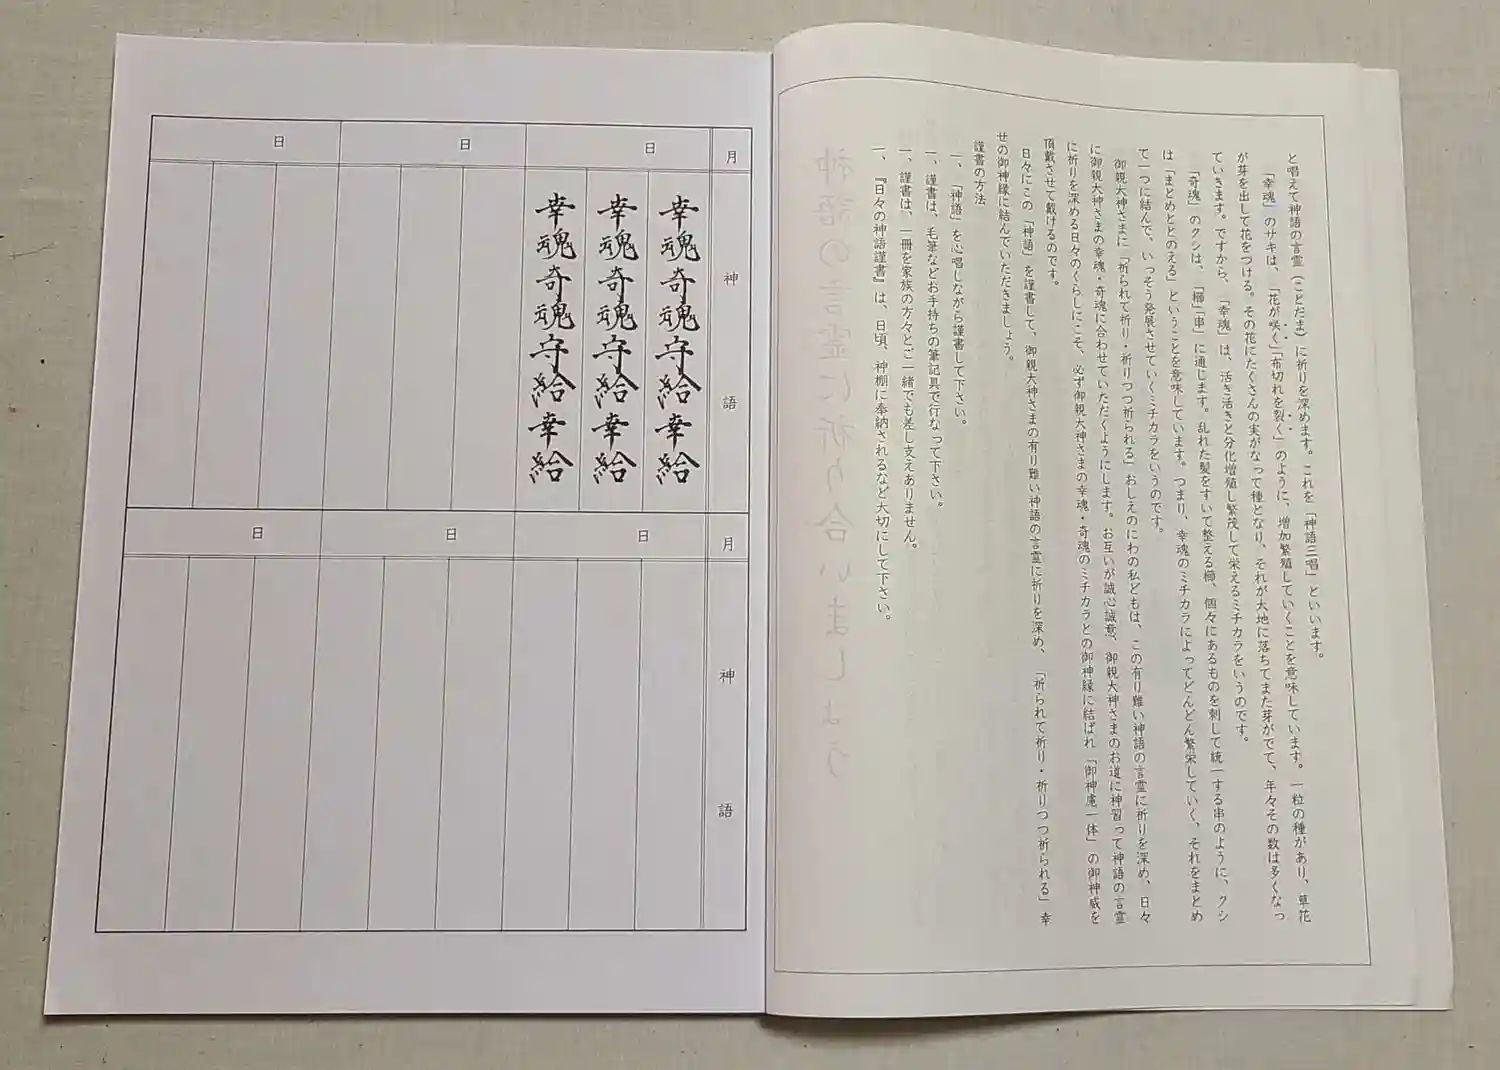 と唱えて神語の言霊(ことだま)に祈りを深めます。これを「神語三唱」といいます。
「幸魂」のサキは、「花が咲く」「布切れを裂く」のように、増加繁殖していくことを意味しています。一粒の種があり、草花
が芽を出して花をつける。その花にたくさんの実がなって種となり、それが大地に落ちてまた芽がでて、年々その数は多くなっ
ていきます。ですから、「幸魂」は、活き活きと分化増殖し繁茂して栄えるミチカラをいうのです。
「奇魂」のクシは、「櫛」「串」に通じます。乱れた髪をすいて整える櫛、個々にあるものを刺して統一する串のように、クシ
は「まとめととのえる」ということを意味しています。つまり、幸魂のミチカラによってどんどん繁栄していく、それをまとめ
て一つに結んで、いっそう発展させていくミチカラをいうのです。
御親大神さまに「祈られて祈り・祈りつつ祈られる」おしえのにわの私どもは、この有り難い神語の言霊に祈りを深め、日々
に御親大神さまの幸魂・奇魂に合わせていただくようにします。お互いが誠心誠意、御親大神さまのお道に神習って神語の言霊
に祈りを深める日々のくらしにこそ、必ず御親大神さまの幸魂・奇魂のミチカラとの御神縁に結ばれ「御神慮一体」の御神威を
頂戴させて戴けるのです。
日々にこの「神語」を謹書して、御親大神さまの有り難い神語の言霊に祈りを深め、「祈られて祈り・祈りつつ祈られる」幸
せの御神縁に結んでいただきましょう。
謹書の方法
一、「神語」を心唱しながら謹書して下さい。
一、謹書は、毛筆などお手持ちの筆記具で行なって下さい。
一、謹書は、一冊を家族の方々とご一緒でも差し支えありません。
一、『日々の神語謹書』は、日頃、神棚に奉納されるなど大切にして下さい。
神語の言霊に祈り合いましょう
月
神語
日
幸魂奇魂守給幸給
幸魂奇魂守給幸給
幸魂奇魂守給幸給
日
日
月
神語
日
日
日